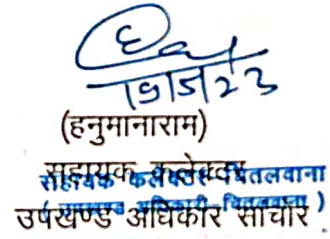 19/5/23
(हनुमानाराम)
सहायक कलेक्टर
सहायक कलेक्टर चितलवाना
उपखण्ड अधिकारी सांचोर
(उपखण्ड अधिकारी-चितलवाना)